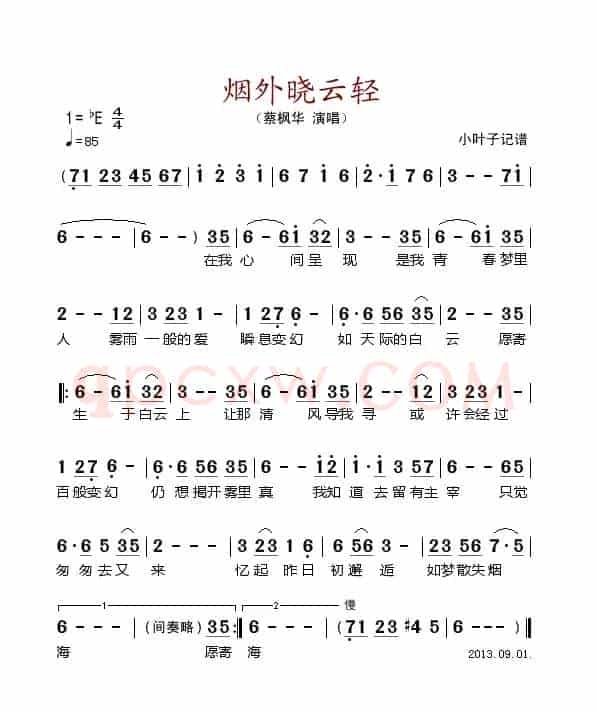 烟外晓云轻
1=♭E 4/4
（蔡枫华 演唱）
♩=85
小叶子记谱
（71 23 45 67 | i 2 3 i | 6 7 i 6 | 2·i 7 6 | 3 - - 7i |
6 - - - | 6 - - ）35 | 6 - 6i 32 | 3 - - 35 | 6 - 6i 35 |
在我 心 间呈 现 是我 青 春梦里
2 - - 12 | 3 23 1 - | 1 27 6 - | 6·6 56 35 | 2 - - 35 |
人 雾雨 一般的爱 瞬息变幻 如天际的白 云 愿寄
‖: 6 - 6i 32 | 3 - - 35 | 6 - 6i 35 | 2 - - 12 | 3 23 1 - |
生 于白云 上 让那 清 风导我 寻 或 许会经过
1 27 6 - | 3·6 56 35 | 6 - - i2 | i·i 35 53 | 6 - - 65 |
百般变幻 仍 想揭开雾里 真 我知 道去留有主 宰 只觉
6·6 5 35 | 2 - - - | 3 23 1 6 | 2·2 56 5 | 23 56 7·5 |
匆匆去又 来 忆起 昨日 初邂逅 如梦散失烟
1 2 慢
6 - - - | （间奏略） 35 :‖ 6 - - - | （71 23 #4 5 | 6 - - - ）‖
海 愿寄 海
2013.09.01.
qpcxw.COM